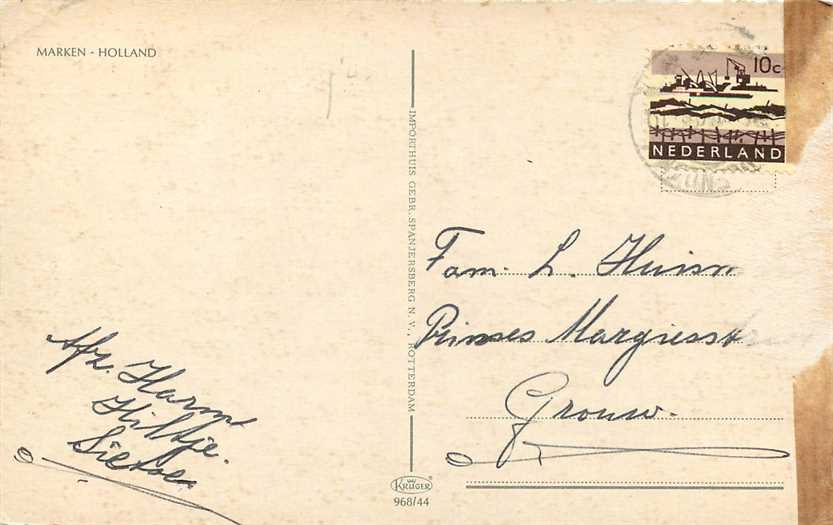 MARKEN - HOLLAND
10c
NEDERLAND
IMPORTHUIS GEBR. SPANJERSBERG N.V., ROTTERDAM
Fam. L. Huism
Prinses Margriesst
Grouw.
Afz. Harm
Hiltje.
Sietse
KRÜGER
968/44